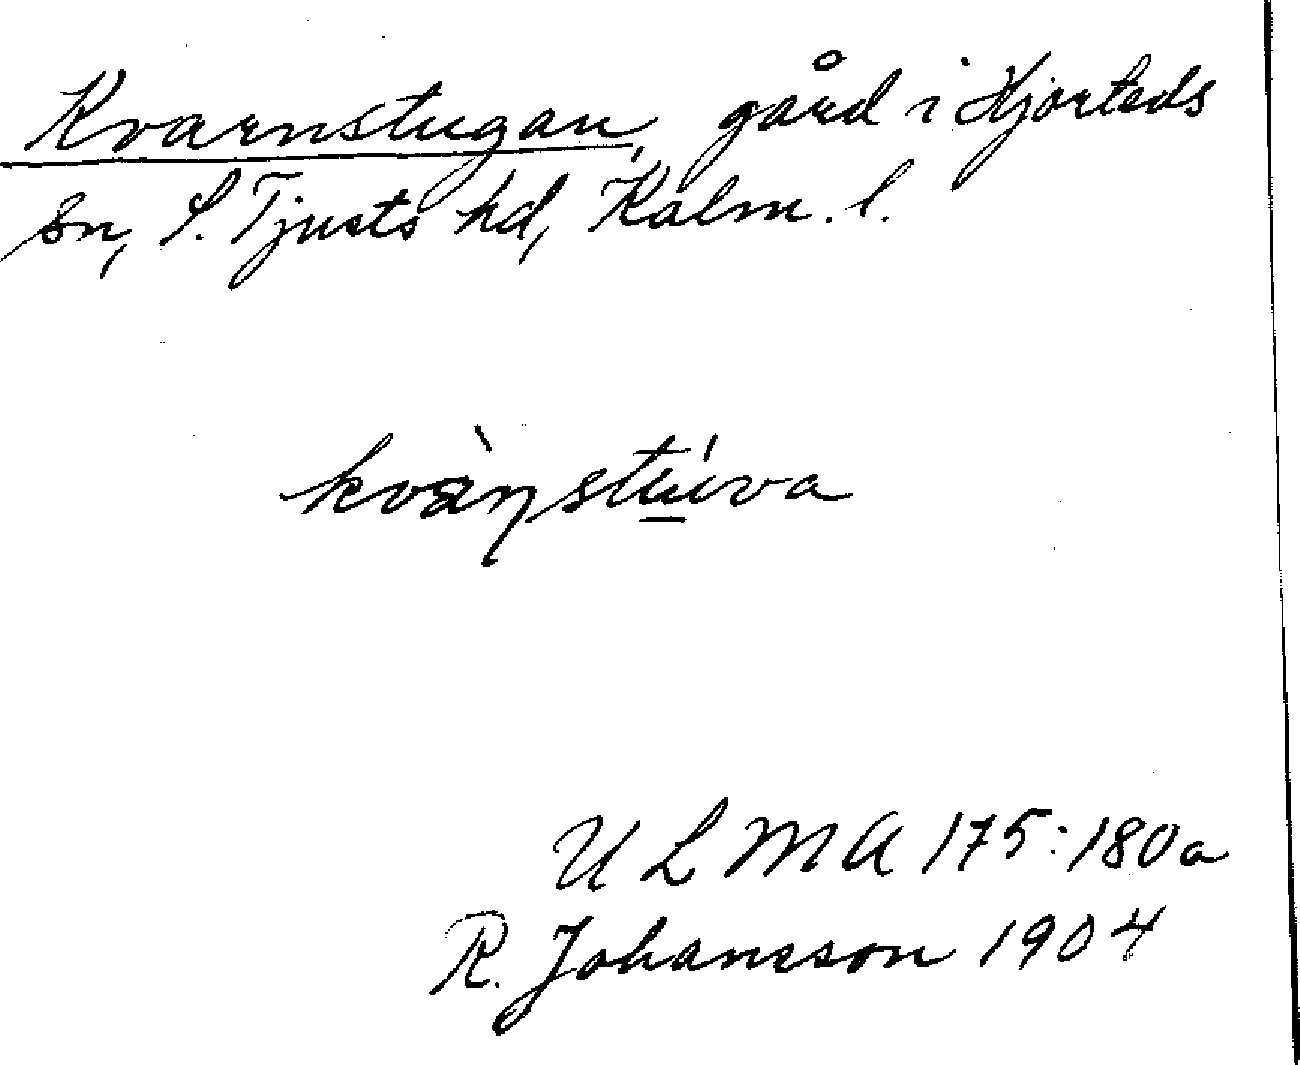 Kvarnstugan, gård i Hjorteds
sn, S. Tjusts hd, Kalm. l.
kvàɳstúva
ULMA 175:180a
R. Johansson 1904